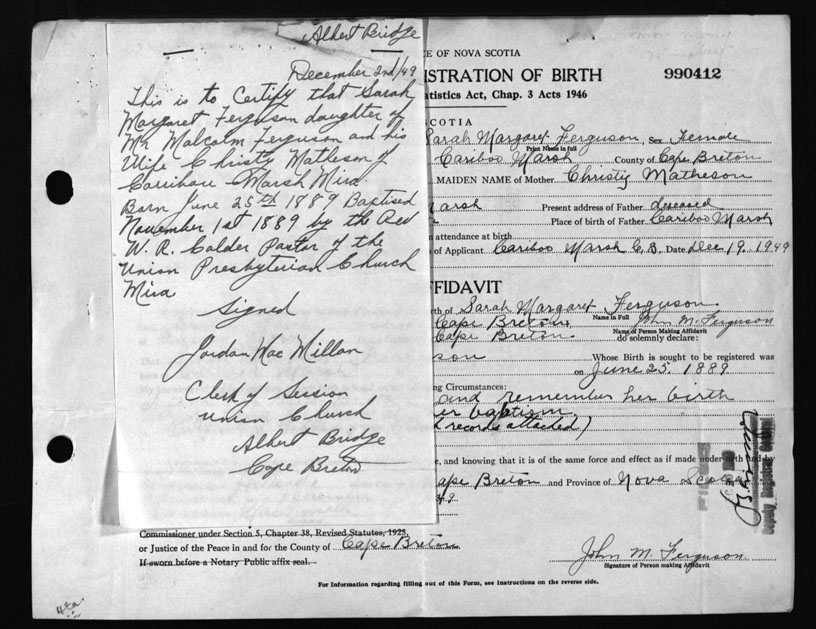 Albert Bridge
December 2nd/49
This is to Certify that Sarah
Margaret Ferguson daughter of
Mr Malcolm Ferguson and his
Wife Christy Matheson of
Carribau Marsh Mira
Born June 25th 1889 Baptised
November 1st 1889 by the Rev
W. R. Calder Pastor of the
Union Presbyterian Church
Mira
Signed
Jordan MacMillan
Clerk of Session
Union Church
Albert Bridge
Cape Breton
CE OF NOVA SCOTIA
ISTRATION OF BIRTH 990412
tatistics Act, Chap. 3 Acts 1946
SCOTIA
Sarah Margaret Ferguson, Sex Female
Print Name in full
Cariboo Marsh County of Cape Breton
MAIDEN NAME of Mother Christy Matheson
Marsh Present address of Father deceased
Place of birth of Father Cariboo Marsh
n attendance at birth
s of Applicant Cariboo Marsh C.B. Date Dec 19, 1949
FFIDAVIT
rth of Sarah Margaret Ferguson
Name in Full
Cape Breton, John M. Ferguson
Name of Person Making Affidavit
Cape Breton do solemnly declare:
son Whose Birth is sought to be registered was
on June 25. 1889.
ng Circumstances:
and remember her birth
er baptism
records attached)
e, and knowing that it is of the same force and effect as if made under oath and by
Cape Breton and Province of Nova Scotia
49
Commissioner under Section 5, Chapter 38, Revised Statutes, 1923
or Justice of the Peace in and for the County of Cape Breton
If sworn before a Notary Public affix seal.
John M. Ferguson
Signature of Person making Affidavit
For Information regarding filling out of this Form, see instructions on the reverse side.